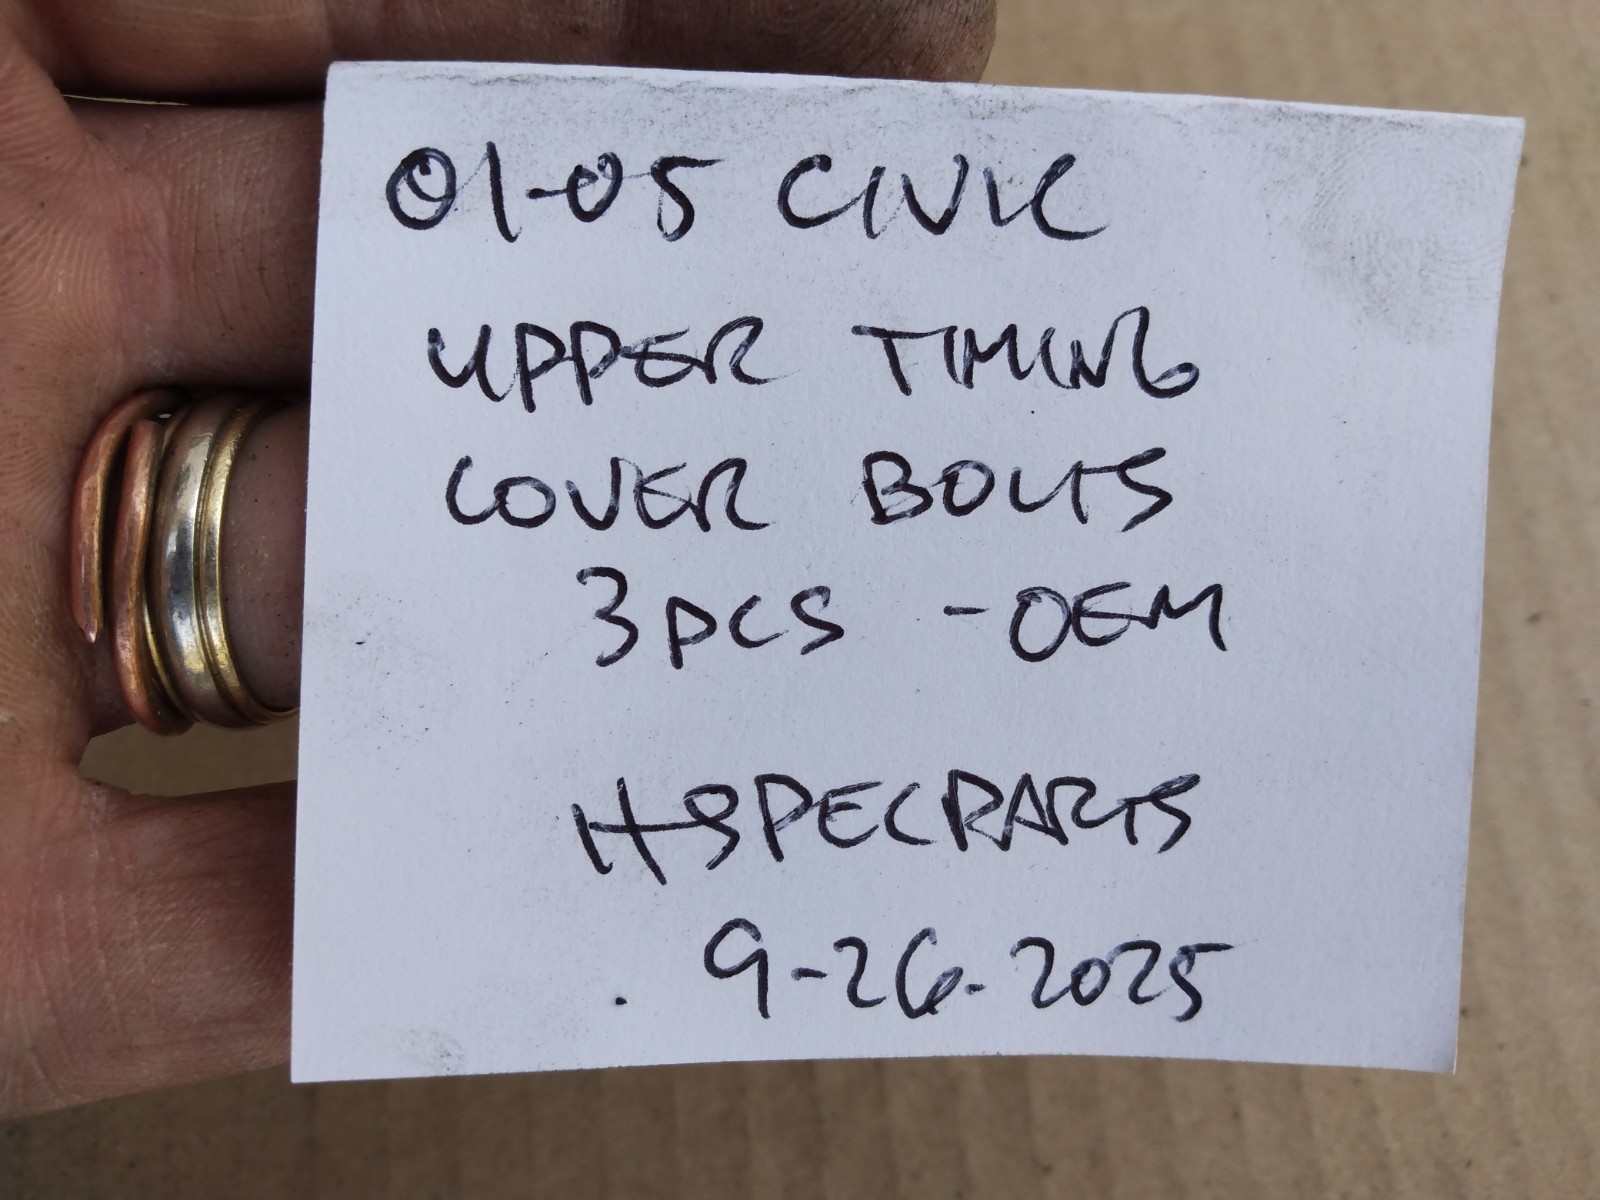 01-05 CIVIC
UPPER TIMING
COVER BOLTS
3 PCS - OEM
HSPECPARTS
9-26-2025